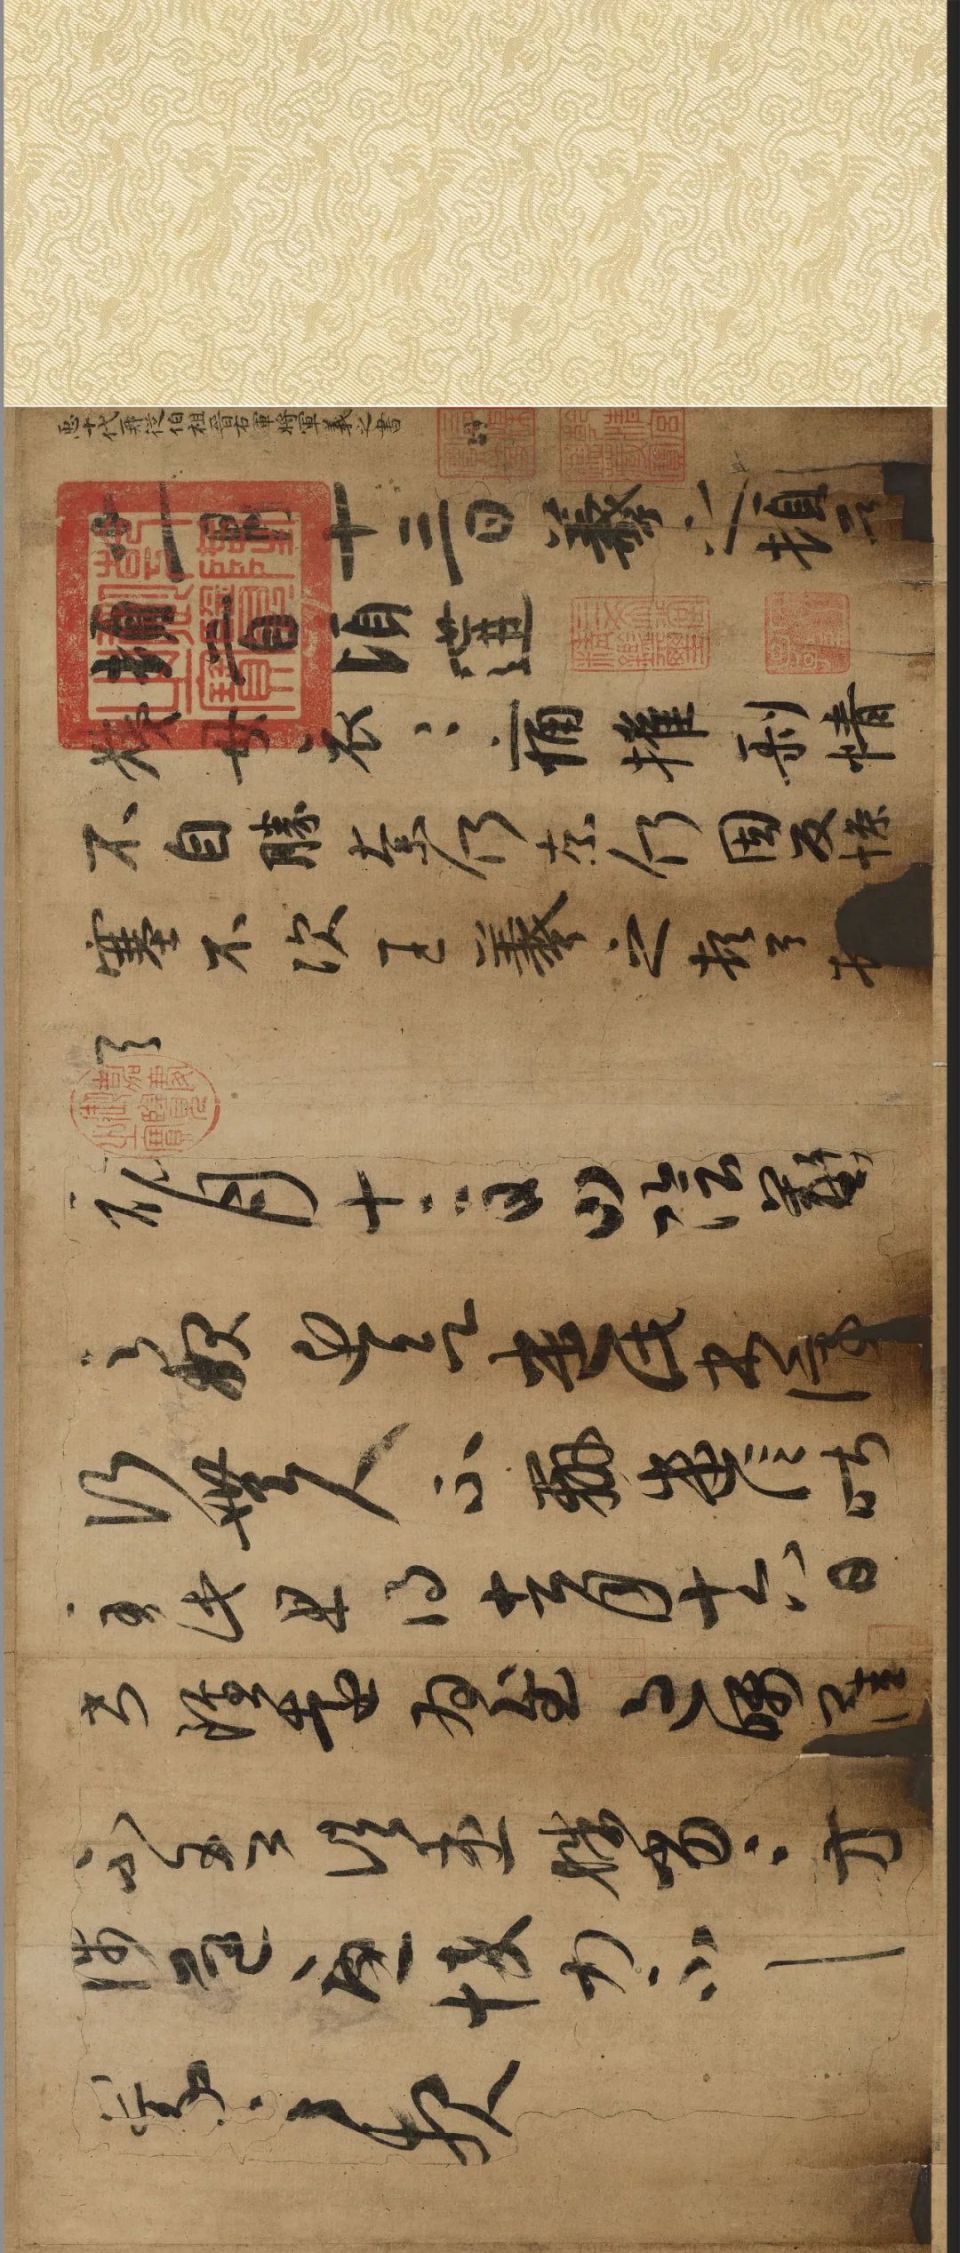 臣十代再從伯祖晉右軍將軍羲之書
十一月十三日羲之頓首
頓首頃遘
姨母哀哀痛摧剝情
不自勝奈何奈何因反慘
塞不次王羲之頓首頓
首
初月十二日山陰羲
之報近欲遣此書停
行無人不辦遣信昨
至此且得去月十六日
書雖遠為慰過囑卿佳
不吾諸患殊劣殊劣方
涉道憂悴力不具
羲之報